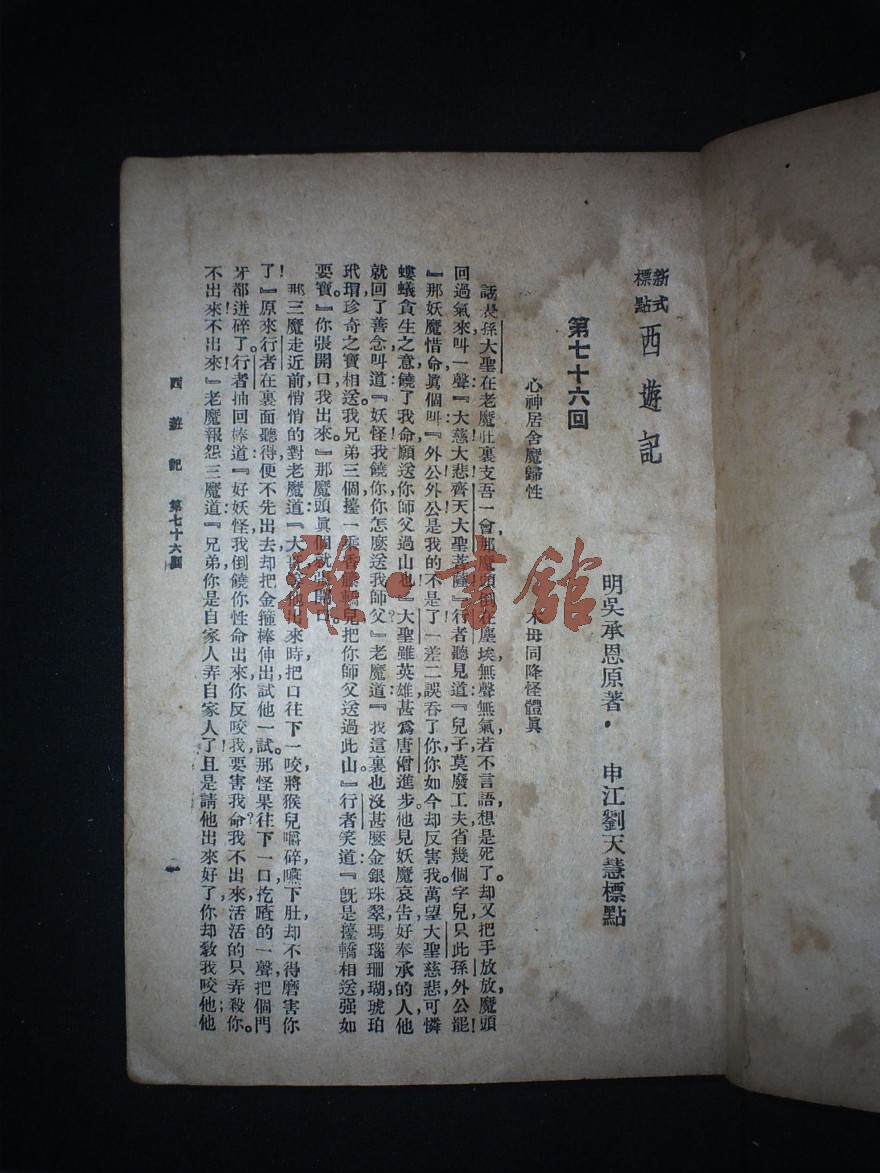 新式標點 西遊記
明吳承恩原著・ 申江劉天慧標點
第七十六回
心神居舍魔歸性 木母同降怪體眞
話表孫大聖在老魔肚裏支吾一會，那魔頭倒在塵埃，無聲無氣，若不言語，想是死了。却又把手放放，魔頭
回過氣來，叫一聲：『大慈大悲齊天大聖菩薩！』行者聽見道：『兒子，莫廢工夫，省幾個字兒，只叫孫外公罷！
『那妖魔惜命，眞個叫：『外公！外公！是我的不是了！一差二誤吞了你，你如今却反害我。萬望大聖慈悲，可憐
螻蟻貪生之意，饒了我命，願送你師父過山也。』大聖雖英雄，甚爲唐僧進步，他見妖魔哀告，好奉承的人，他
就回了善念，叫道：『妖怪，我饒你，你怎麼送我師父？』老魔道：『我這裏也沒甚麼金銀、珠翠、瑪瑙、珊瑚、琥珀、
玳瑁珍奇之寶相送，我兄弟三個，擡一乘香藤轎兒，把你師父送過此山。』行者笑道：『旣是擡轎相送，强如
要寶。』你張開口，我出來。』那魔頭眞個就張開口。
那三魔走近前，悄悄的對老魔道：『大哥，等他出來時，把口往下一咬，將猴兒嚼碎，嚥下肚，却不得磨害你
了！』原來行者在裏面聽得，便不先出去，却把金箍棒伸出，試他一試。那怪果往下一口，扢喳的一聲，把個門
牙都迸碎了。行者抽回棒道：『好妖怪！我倒饒你性命出來，你反咬我，要害我命？我不出來，活活的只弄殺你。
不出來！不出來！』老魔報怨三魔道：『兄弟，你是自家人弄自家人了，且是請他出來好了，你却敎我咬他；他
西遊記 第七十六回 一
雜·書館